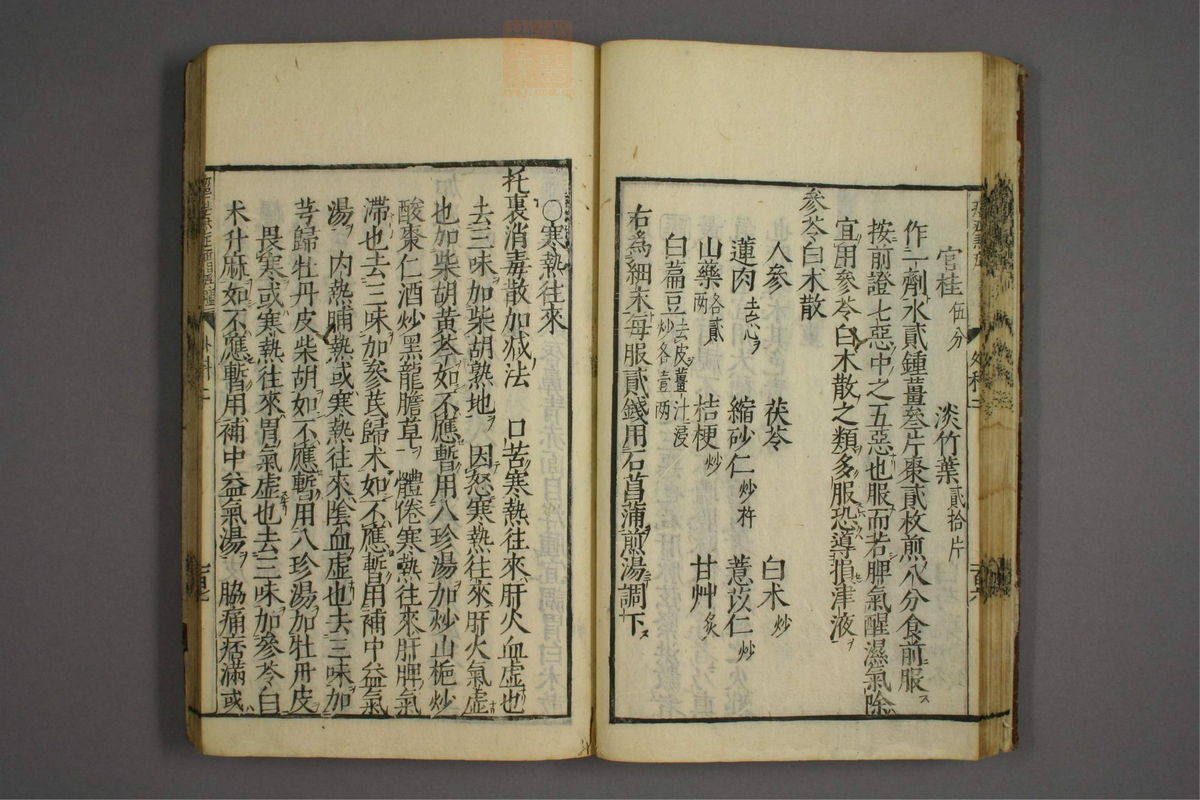 官桂 伍分 淡竹葉 貳拾片
作一劑水貳鍾薑叄片棗貳枚煎八分食前服
按前證七惡中之五惡也服而若脾氣醒濕氣除
宜用參苓白术散之類多服恐導損津液
參苓白术散
人參 茯苓 白术 炒
蓮肉 去心 縮砂仁 炒杵 薏苡仁 炒
山藥 各貳兩 桔梗 炒 甘艸 炙
白藊豆 去皮薑汁浸炒各壹兩
右為細末每服貳錢用石菖蒲煎湯調下
○寒熱往來
托裏消毒散加减法 口苦寒熱往來肝火血虛也
去三味加柴胡熟地 因怒寒熱往來肝火氣虛
也加柴胡黃芩如不應暫用八珍湯加炒山梔炒
酸棗仁酒炒黑龍膽草 體倦寒熱往來肝脾氣
滯也去三味加參芪歸术如不應暫用補中益氣
湯 內熱晡熱或寒熱往來陰血虛也去三味加
芎歸牡丹皮柴胡如不應暫用八珍湯加牡丹皮
畏寒或寒熱往來胃氣虛也去三味加參苓白
术升麻如不應暫用補中益氣湯 脇痛痞滿或